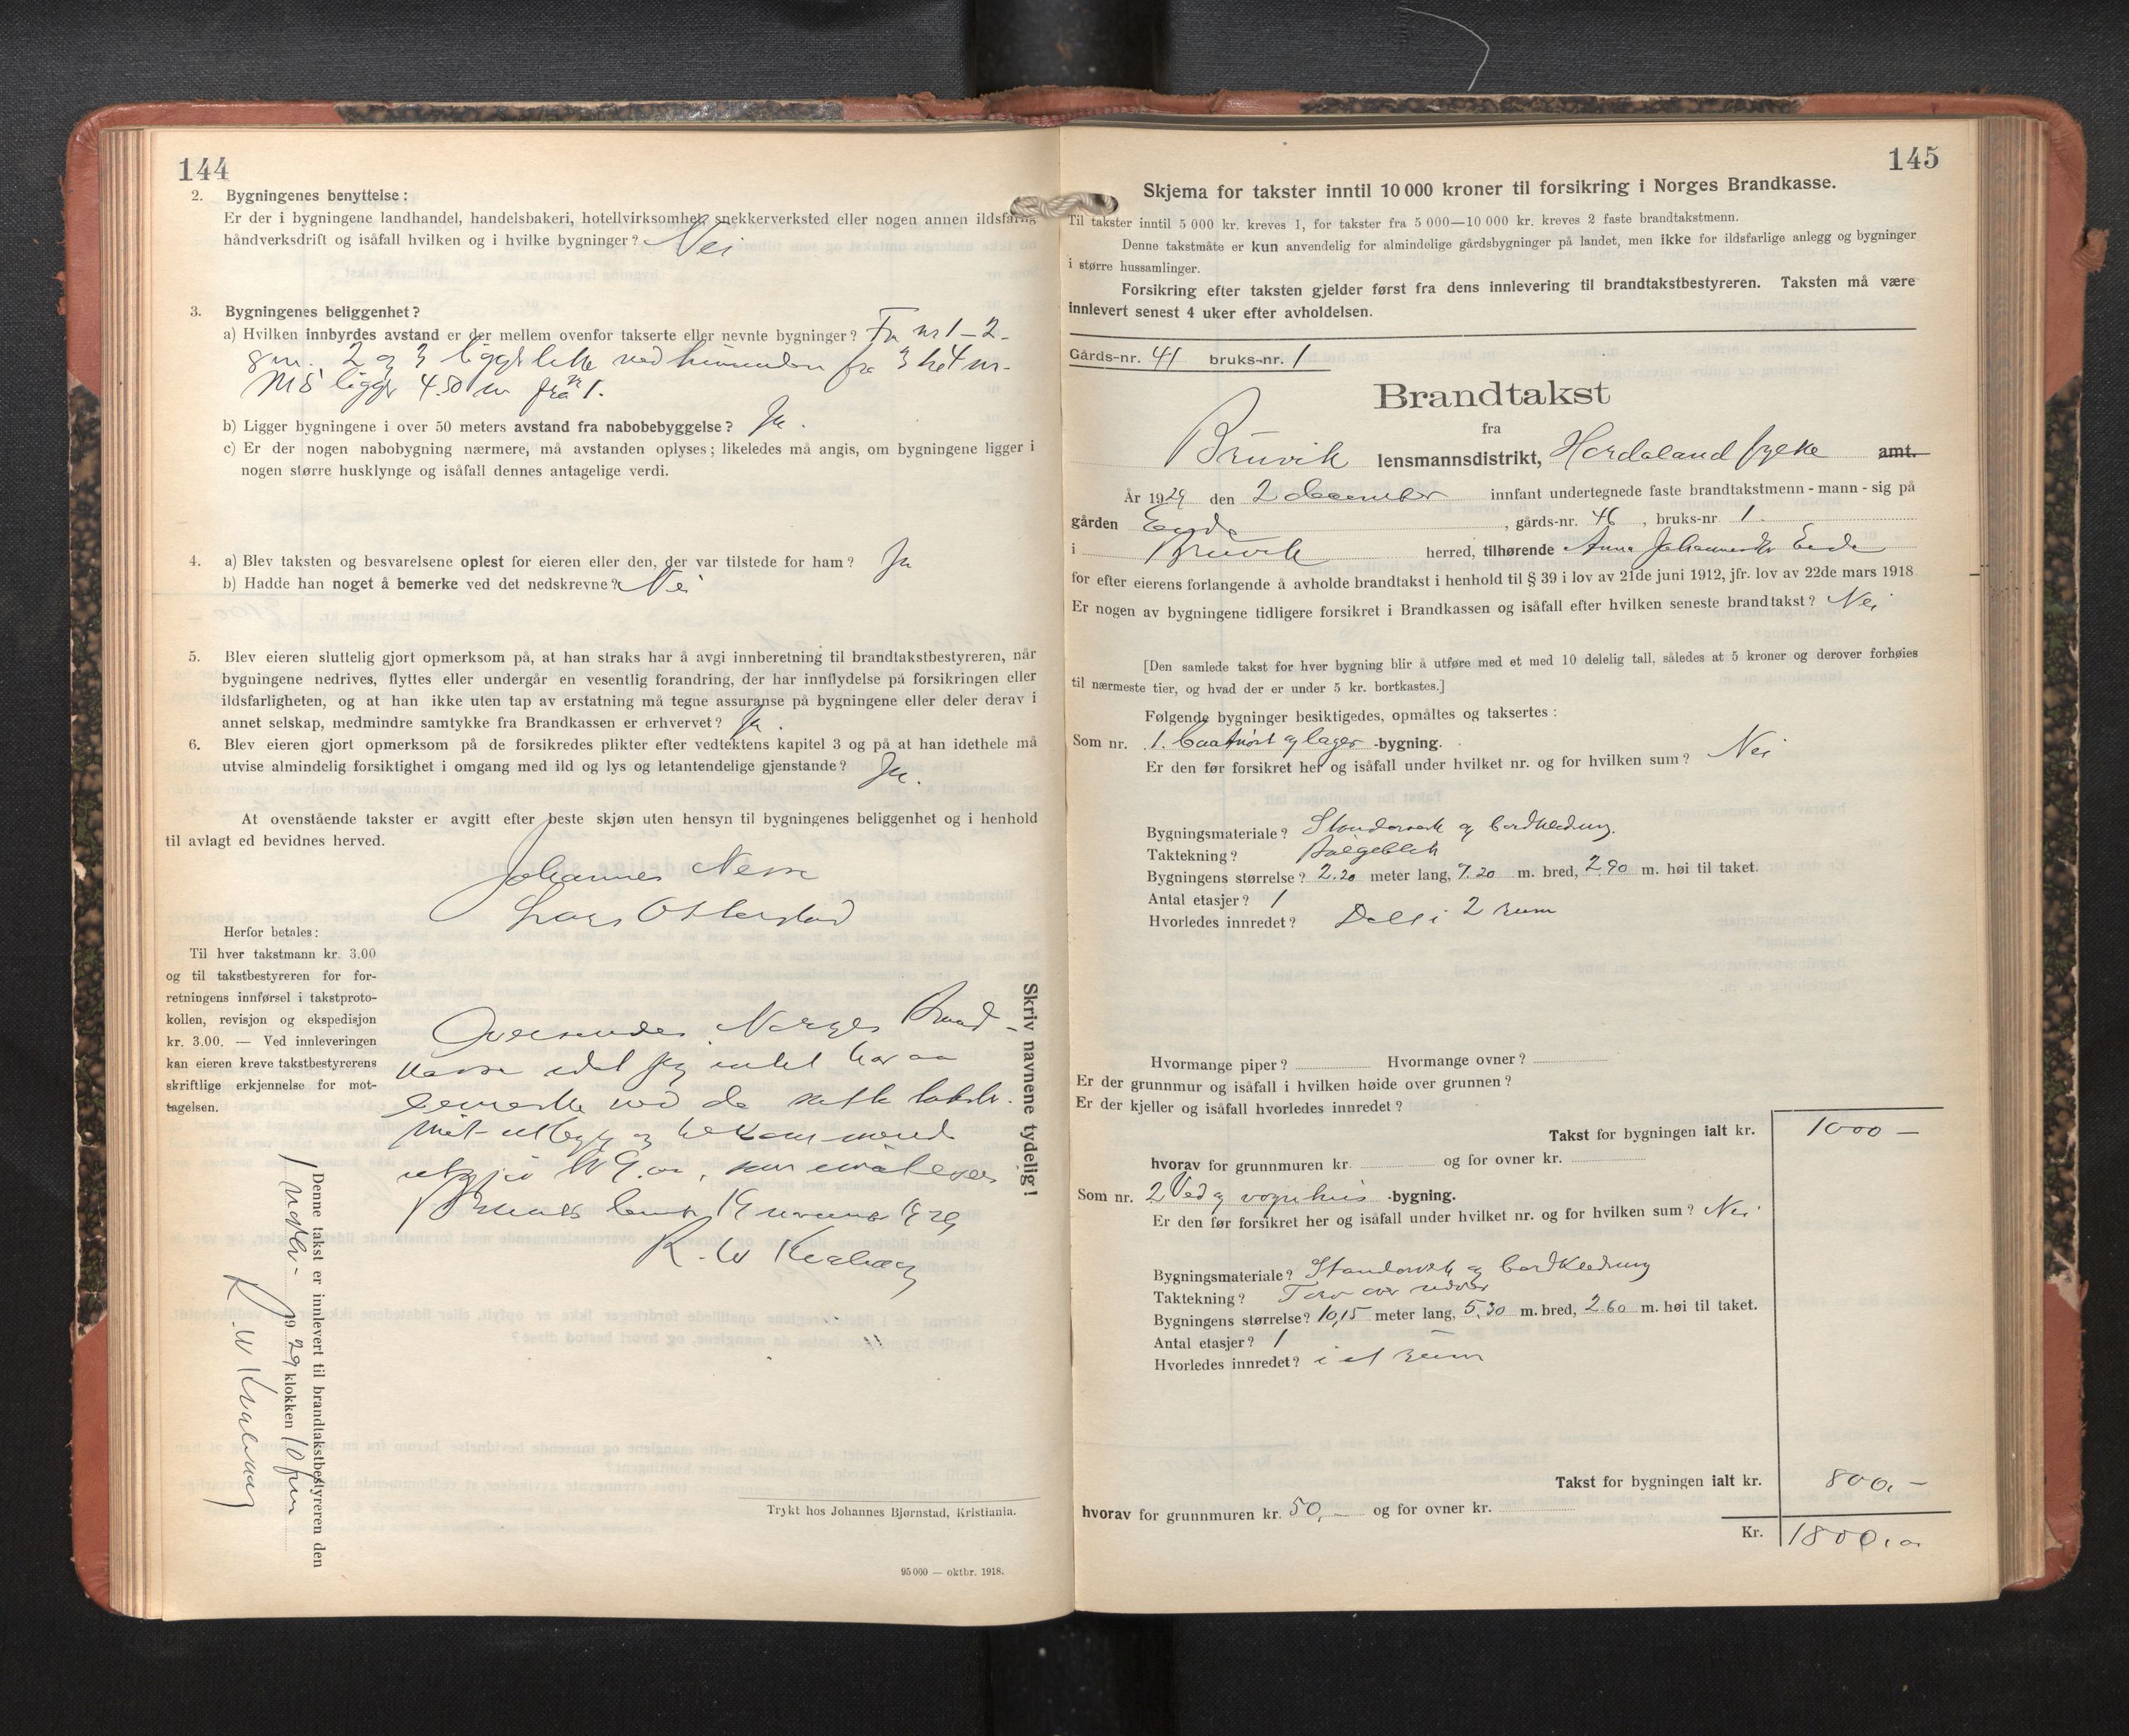 144
2. Bygningenes benyttelse:
Er der i bygningene landhandel, handelsbakeri, hotellvirksomhet, snekkerverksted eller nogen annen ildsfarlig
håndverksdrift og isåfall hvilken og i hvilke bygninger? Nei
3. Bygningenes beliggenhet?
a) Hvilken innbyrdes avstand er der mellem ovenfor takserte eller nevnte bygninger? Fra nr 1 – 2 -
8 m. 2 og 3 ligger ved fra 3 til 4 m.
ligger 4.50 m fra nr 1.
b) Ligger bygningene i over 50 meters avstand fra nabobebyggelse? Ja.
c) Er der nogen nabobygning nærmere, må avstanden oplyses; likeledes må angis, om bygningene ligger i
nogen større husklynge og isåfall dennes antagelige verdi.
4. a) Blev taksten og besvarelsene oplest for eieren eller den, der var tilstede for ham? Ja
b) Hadde han noget å bemerke ved det nedskrevne? Nei
5. Blev eieren sluttelig gjort opmerksom på, at han straks har å avgi innberetning til brandtakstbestyreren, når
bygningene nedrives, flyttes eller undergår en vesentlig forandring, der har innflydelse på forsikringen eller
ildsfarligheten, og at han ikke uten tap av erstatning må tegne assuranse på bygningene eller deler derav i
annet selskap, medmindre samtykke fra Brandkassen er erhvervet? Ja.
6. Blev eieren gjort opmerksom på de forsikredes plikter efter vedtektens kapitel 3 og på at han idethele må
utvise almindelig forsiktighet i omgang med ild og lys og letantendelige gjenstande? Ja.
At ovenstående takster er avgitt efter beste skjøn uten hensyn til bygningenes beliggenhet og i henhold
til avlagt ed bevidnes herved.
Johannes Nesse
Lars Otterstad
Herfor betales:
Til hver takstmann kr. 3.00
og til takstbestyreren for for-
retningens innførsel i takstproto-
kollen, revisjon og ekspedisjon
kr. 3.00. — Ved innleveringen
kan eieren kreve takstbestyrerens
skriftlige erkjennelse for mot-
tagelsen.
Oversendes Norges Brand-
kasse idet jeg intet har aa
bemerke ved de satte takster.
R. W
Skriv navnene tydelig!
Denne takst er innlevert til brandtakstbestyreren den
1929 klokken 10 fm
R. W
Trykt hos Johannes Bjørnstad, Kristiania.
95 000 — oktbr. 1918.
145
Skjema for takster inntil 10 000 kroner til forsikring i Norges Brandkasse.
Til takster inntil 5 000 kr. kreves 1, for takster fra 5 000—10 000 kr. kreves 2 faste brandtakstmenn.
Denne takstmåte er kun anvendelig for almindelige gårdsbygninger på landet, men ikke for ildsfarlige anlegg og bygninger
i større hussamlinger.
Forsikring efter taksten gjelder først fra dens innlevering til brandtakstbestyreren. Taksten må være
innlevert senest 4 uker efter avholdelsen.
Gårds-nr. 41 bruks-nr. 1
Brandtakst
fra
Bruvik lensmannsdistrikt, Hordaland fylke amt.
År 1929 den 2 december innfant undertegnede faste brandtakstmenn - mann - sig på
gården , gårds-nr. 46, bruks-nr. 1.
i Bruvik herred, tilhørende Anna Eide
for efter eierens forlangende å avholde brandtakst i henhold til § 39 i lov av 21de juni 1912, jfr. lov av 22de mars 1918
Er nogen av bygningene tidligere forsikret i Brandkassen og isåfall efter hvilken seneste brandtakst? Nei
[Den samlede takst for hver bygning blir å utføre med et med 10 delelig tall, således at 5 kroner og derover forhøies
til nærmeste tier, og hvad der er under 5 kr. bortkastes.]
Følgende bygninger besiktigedes, opmåltes og taksertes:
Som nr. 1. baatnøst og lager -bygning.
Er den før forsikret her og isåfall under hvilket nr. og for hvilken sum? Nei
Bygningsmateriale? Standerverk og bordkledning.
Taktekning? Bølgeblek
Bygningens størrelse? 2.20 meter lang, 7.20 m. bred, 2.90 m. høi til taket.
Antal etasjer? 1
Hvorledes innredet? Delt i 2 rum
Hvormange piper? Hvormange ovner?
Er der grunnmur og isåfall i hvilken høide over grunnen?
Er der kjeller og isåfall hvorledes innredet?
Takst for bygningen ialt kr. 1000 –
hvorav for grunnmuren kr. og for ovner kr.
Som nr. 2 Ved og vognhus -bygning.
Er den før forsikret her og isåfall under hvilket nr. og for hvilken sum? Nei
Bygningsmateriale? Standerverk og bordkledning
Taktekning? Torv over never
Bygningens størrelse? 10,15 meter lang, 5.30 m. bred, 2.60 m. høi til taket.
Antal etasjer? 1
Hvorledes innredet? i et rum
Takst for bygningen ialt kr. 800,–
hvorav for grunnmuren kr. 50,– og for ovner kr.
Kr. 1800,00